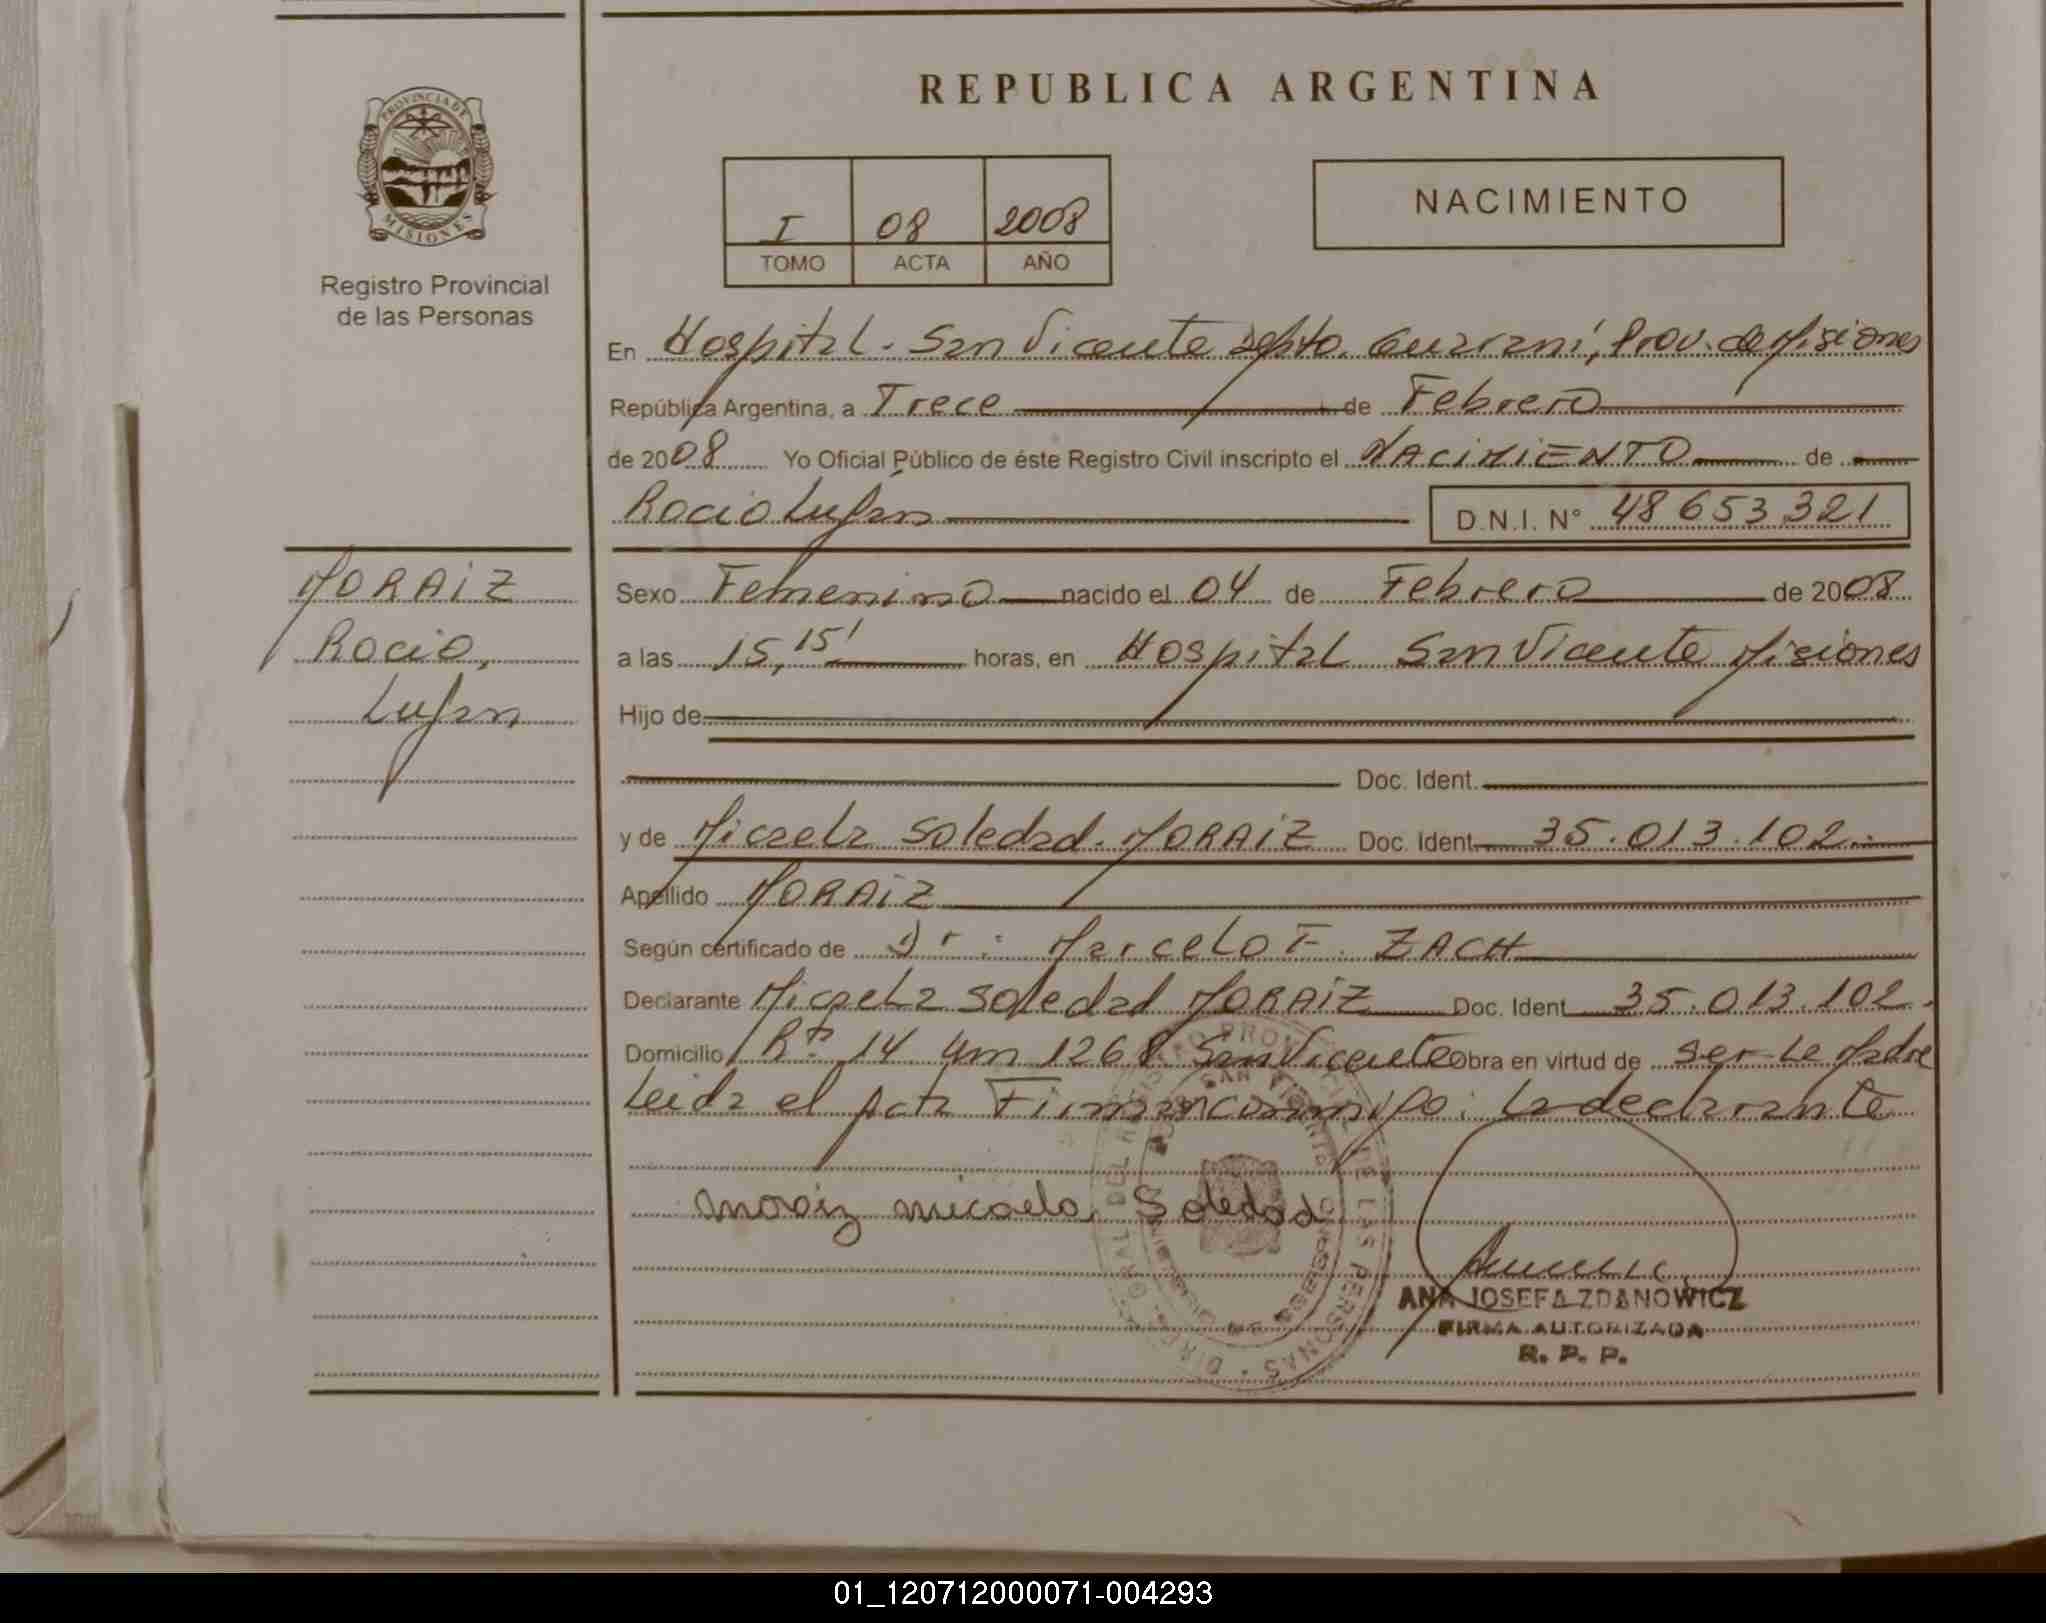 REPUBLICA ARGENTINA
PROVINCIA DE
MISIONES
Registro Provincial
de las Personas
I 08 2008
TOMO ACTA AÑO
NACIMIENTO
En Hospital - San Vicente Depto. Guarani, Prov. de Misiones
República Argentina, a Trece de Febrero
de 2008 Yo Oficial Público de éste Registro Civil inscripto el NACIMIENTO de
Rocio Lujan D.N.I. N° 48653321
MORAIZ
Rocio,
Lujan
Sexo Femenino nacido el 04 de Febrero de 2008
a las 15,15' horas, en Hospital San Vicente Misiones
Hijo de
Doc. Ident.
y de Micaela Soledad. MORAIZ Doc. Ident 35.013.102.-
Apellido MORAIZ
Según certificado de Dr: Marcelo F. ZACH
Declarante Micaela Soledad MORAIZ Doc. Ident 35.013.102.
Domicilio Rta 14 Km 1268 San Vicente obra en virtud de ser la Madre
Leida el acta Firman conmigo: La declarante
Moraiz Micaela Soledad
ANA JOSEFA ZDANOWICZ
FIRMA AUTORIZADA
R. P. P.
01_120712000071-004293